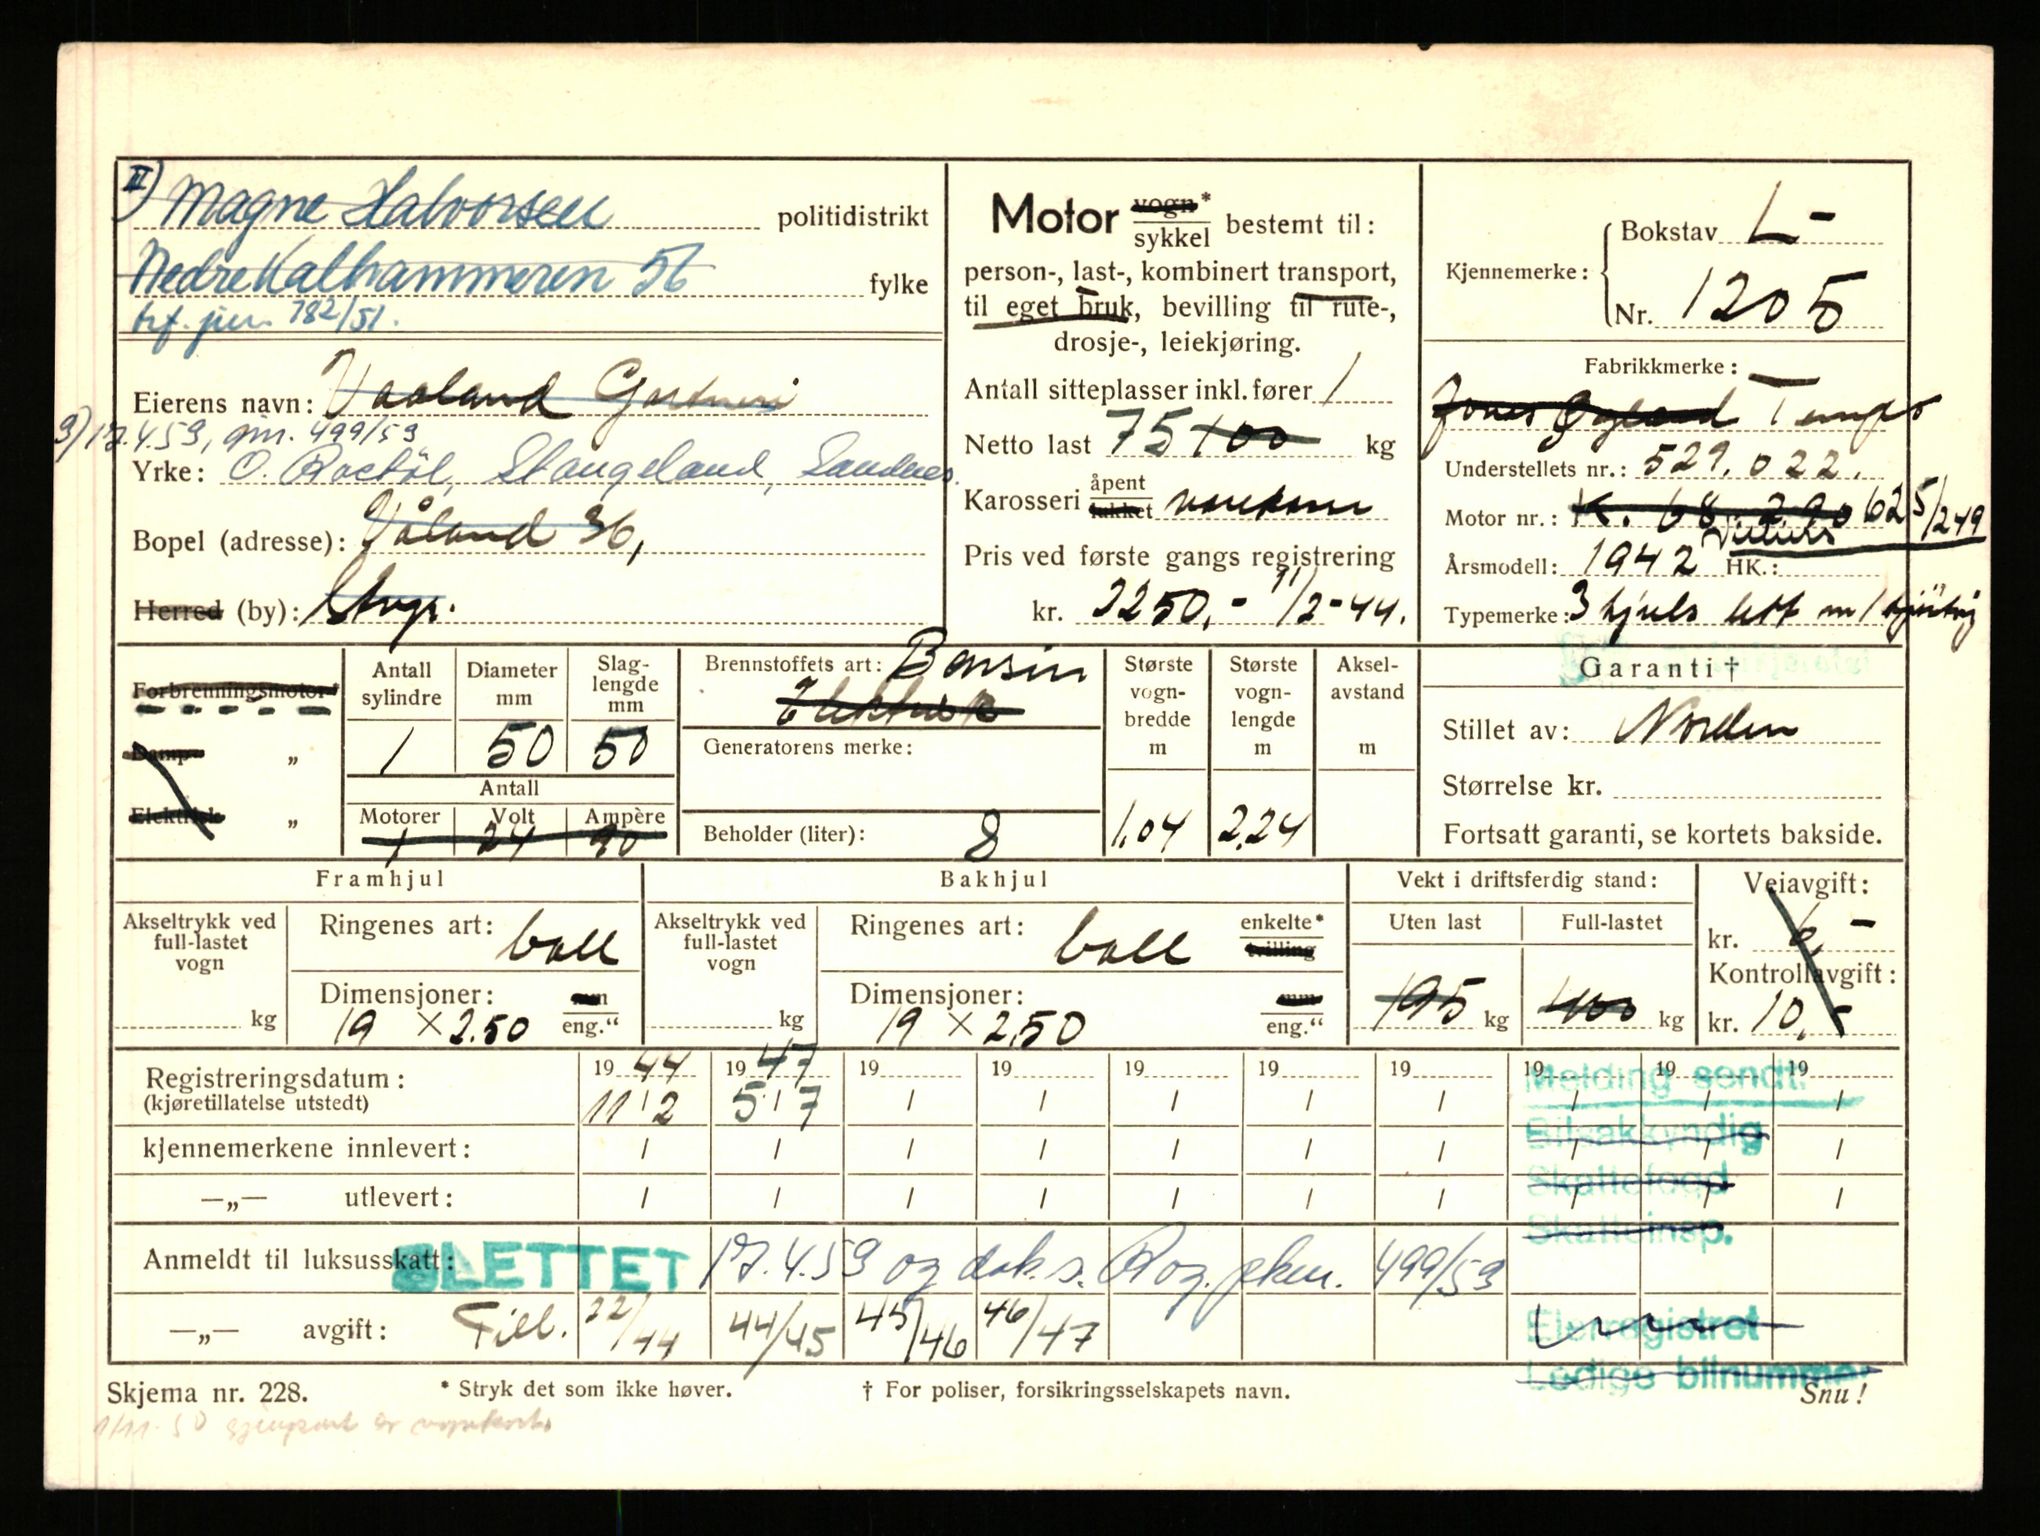 II) Magne Halvorsen politidistrikt
Nedre Kalhammeren 56 fylke
782/51.
Eierens navn: Vaaland Gartneri
3) 17.4.53, 499/53
Yrke: O. Stangeland, Sandnes.
Bopel (adresse): Våland 36,
Herred (by): Stvgr.
Motor vogn* sykkel bestemt til:
person-, last-, kombinert transport,
til eget bruk, bevilling til rute-,
drosje-, leiekjøring.
Antall sitteplasser inkl. fører 1
Netto last 75 100 kg
Karosseri åpent lukket varekasse
Pris ved første gangs registrering
kr. 2250.- 11/2-44.
Kjennemerke: Bokstav L-
Nr. 1205
Fabrikkmerke:
Jonas Øglænd Tempo
Understellets nr.: 529.022.
Motor nr.: K. 68.290 625/249
Villiers
Årsmodell: 1942 HK.:
Typemerke: 3 hjuls lett m/
Forbrenningsmotor*
Damp- „
Elektrisk „
Antall sylindre 1
Diameter mm 50
Slaglengde mm 50
Antall
Motorer Volt Ampère
1 24 90
Brennstoffets art: Bensin
Elektrisk
Generatorens merke:
Beholder (liter): 8
Største vogn-bredde m 1,04
Største vogn-lengde m 2,24
Aksel-avstand m
Garanti †
Stillet av: Norden
Størrelse kr.
Fortsatt garanti, se kortets bakside.
Framhjul
Akseltrykk ved full-lastet vogn kg
Ringenes art: ball
Dimensjoner: mm
19 × 2.50 eng.“
Bakhjul
Akseltrykk ved full-lastet vogn kg
Ringenes art: ball enkelte* tvilling
Dimensjoner: mm
19 × 2,50 eng.“
Vekt i driftsferdig stand:
Uten last Full-lastet
195 kg 400 kg
Veiavgift:
kr. 6,-
Kontrollavgift:
kr. 10,-
Registreringsdatum: 19 44 19 47 19 19 19 19 19 19 19 19
(kjøretillatelse utstedt) 11/2 5/7 / / / / / / / /
kjennemerkene innlevert: / / / / / / / / / /
—„— utlevert: / / / / / / / / / /
Anmeldt til luksusskatt: SLETTET 17.4.53 og dok.s. Rog. 499/53
—„— avgift: 22/44 44/45 45/46 46/47
Melding sendt:
Bilsakkyndig
Skattefogd
Skatteinsp.
Eierregistret
Ledige bilnummer
Skjema nr. 228. * Stryk det som ikke høver. † For poliser, forsikringsselskapets navn. Snu!
1/11.50